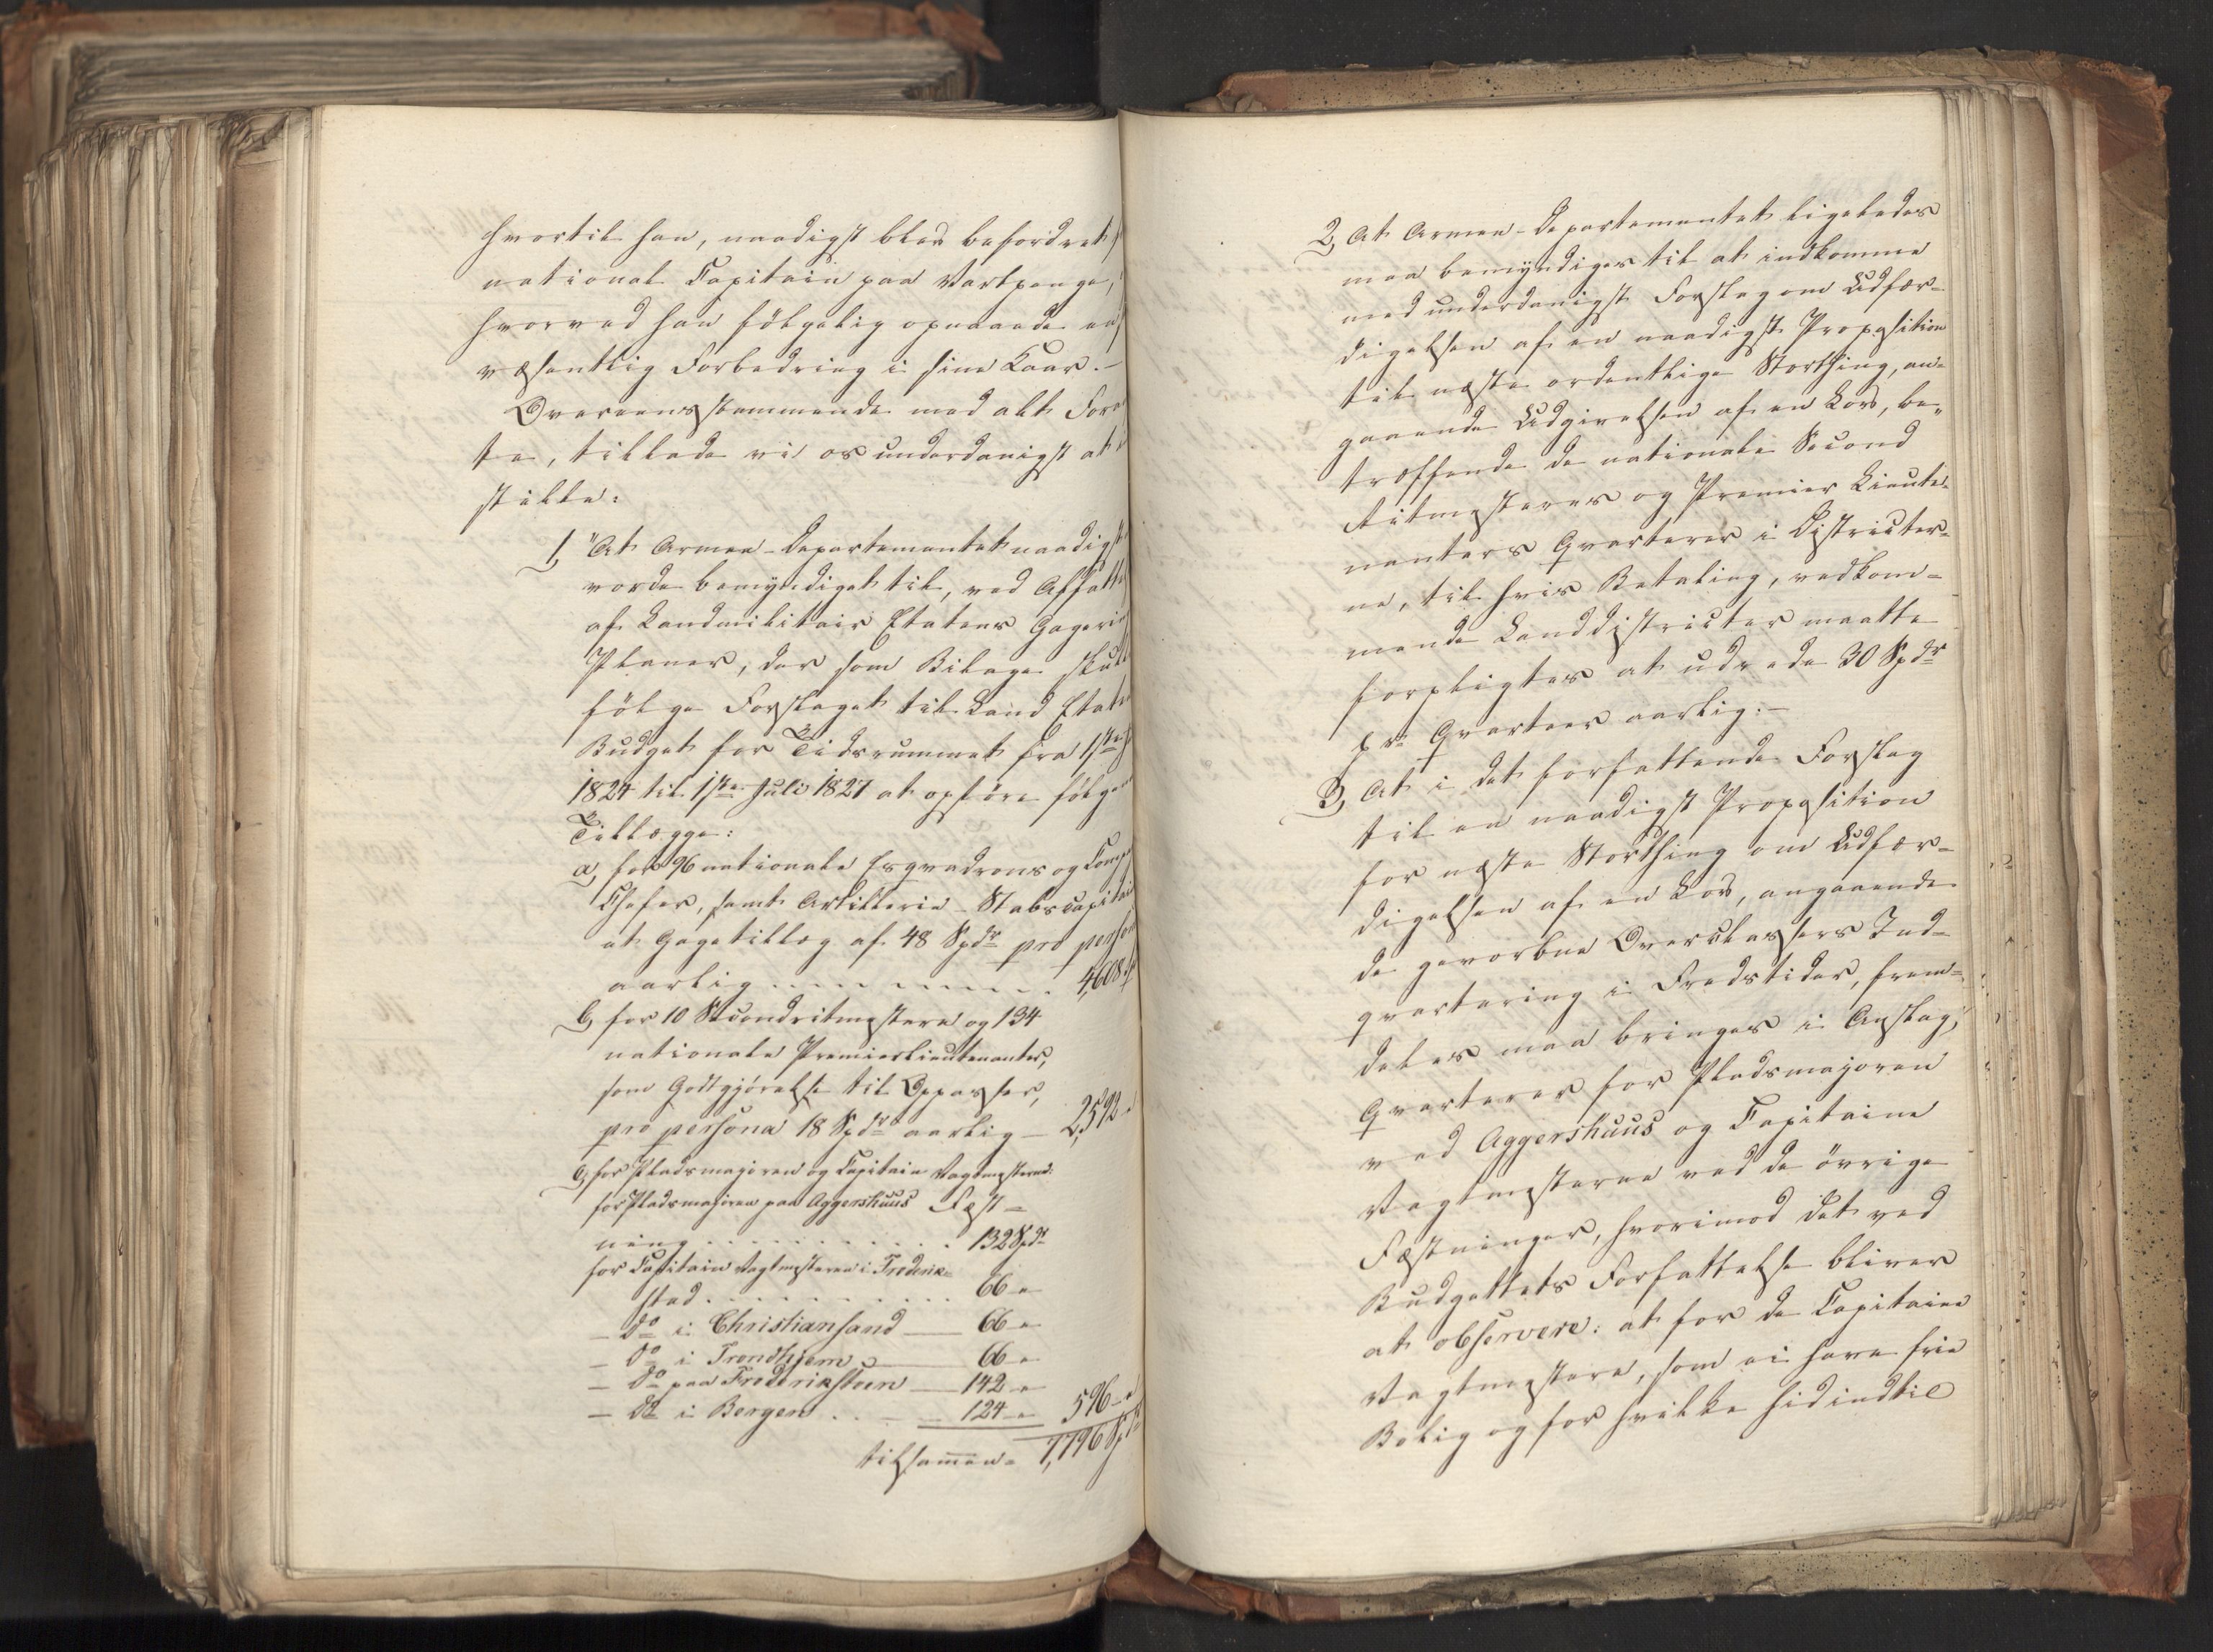 hvortil han, naadigst blev befordret
national Capitain paa Vartpenge,
hvorved han følgelig opnaaede en
væsentlig Forbedring i sine Kaar.-
Overeensstemmende med alt Foran
te, tillade vi os underdanigst at
stille:
1, "At Armee-Departementet naadigst
vorde bemyndiget til, ved Affatte
af Landmilitair Etatens Gagerings
Planer, der som Bilage skulle
følge Forslaget til Land Etatens
Budget for Tidsrummet fra 1ste
1824 til 1ste Juli 1827 at opføre følgende
Tillægge:
a, for 96 nationale Esqvadrons og Comp
Chefer, samt Artillerie-Stabscapitai
et Gagetillæg af 48 Spdr pro person
aarlig ........ 4,608
b, for 10 Secondritmestere og 134
nationale Premierlieutenanter,
som Godtgjørelse til Oppasser,
pro persona 18 Spdr aarlig — 2,592 "
c, for Pladsmajoren og Capitain Vagtmesterne:
for Pladsmajoren paa Aggershuus Fæst-
ning . . . . . . . . . . 132 Spdr
for Capitain Vagtmesteren i Frederik-
stad . . . . . . . . . . 66 "
— do i Christiansand — 66 "
— do i Trondhjem — 66 "
— do paa Frederiksteen — 142 "
— do i Bergen . . — 124 " 596 "
tilsammen = 7,796 Sp
2, At Armee-Departementet ligeledes
maa bemyndiges til at indkomme
med underdanigst Forslag om Udfær-
digelsen af en naadigst Proposition
til næste ordentlige Storthing, an-
gaaende Udgivelsen af en Lov, be-
træffende de nationale Second
Ritmesteres og Premier Lieute-
nanters Qvarterer i Districter-
ne, til hvis Betaling, vedkom-
mende Landdistricter maatte
forpligtes at udrede 30 Spdr
pr. Qvarteer aarlig:-
3, At i det forfattende Forslag
til en naadigst Proposition
for næste Storthing om Udfær-
digelsen af en Lov, angaaende
de gevorbne Overclassers Ind-
qvartering i Fredstider, frem-
deles maa bringes i Anslag,
Qvarterer for Pladsmajoren
ved Aggershuus og Capitaine
Vagtmesterne ved de øvrige
Fæstninger, hvorimod det ved
Budgettets Forfattelse bliver
at observere: at for de Capitaine
Vagtmestere, som ei have frie
Bolig og for hvilke hidindtil